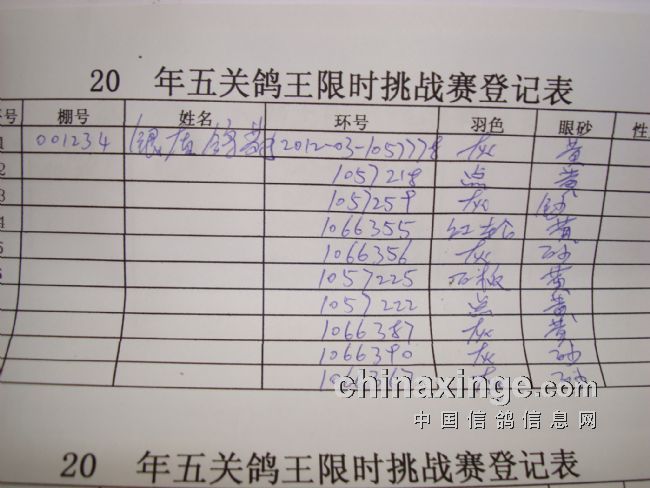 20 年五关鸽王限时挑战赛登记表
号 棚号 姓名 环号 羽色 眼砂 性
1 001234 2012-03-1057778 灰 黄
2 1057218 点 黄
3 1057259 灰
4 1066355 红轮 黄
5 1066356 灰 砂
1057225 石板 黄
1057222 点 黄
1066387 灰 黄
1066390 灰 砂
砂
chinaxinge.com
中国信鸽信息网
20 年五关鸽王限时挑战赛登记表